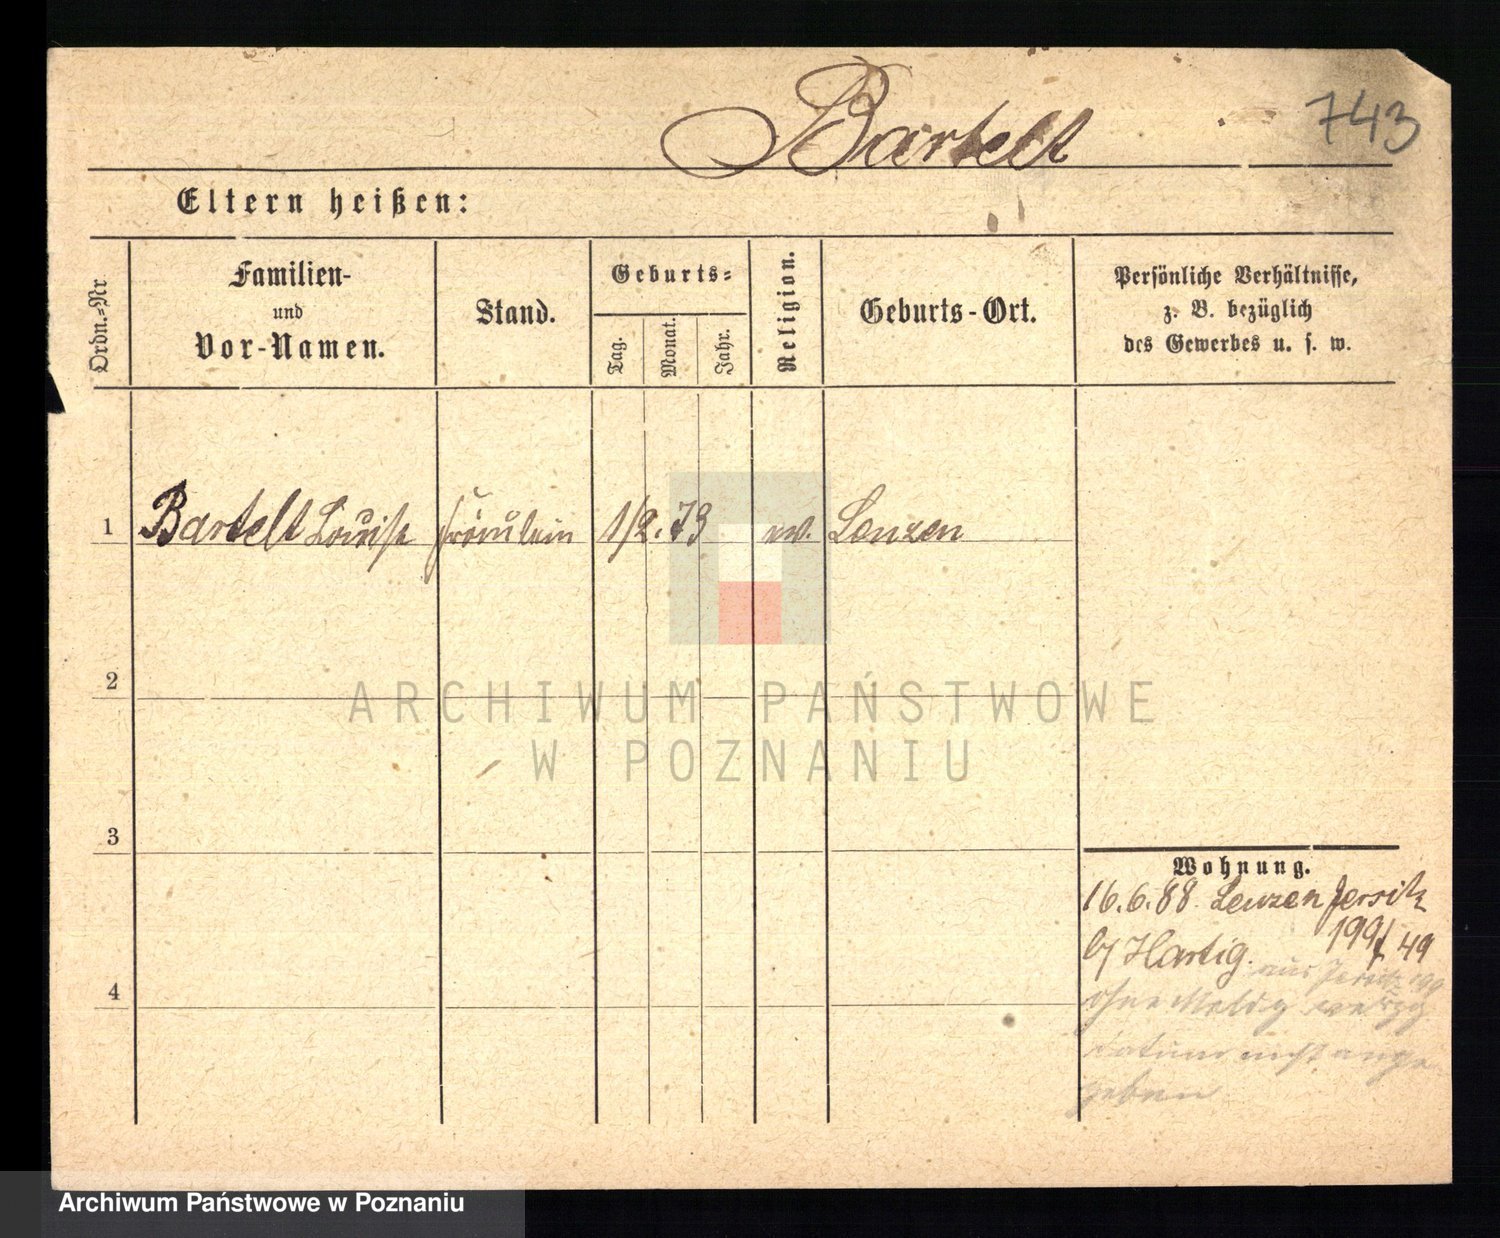 Bartelt
743
Eltern heißen:
Ordn.-Nr
Familien-
und
Vor-Namen.
Stand.
Geburts-
Tag.
Monat.
Jahr.
Religion.
Geburts-Ort.
Persönliche Verhältnisse,
z. B. bezüglich
des Gewerbes u. s. w.
1 Bartelt Louise Fräulein 1/2. 73 ev. Lenzen
2
3
4
Wohnung.
16.6.88 Lenzen Jersitz
199/49
Hartig.
aus Jersitz 199
ohne Meldg verzg
Datum nicht ange
geben
ARCHIWUM PAŃSTWOWE
W POZNANIU
Archiwum Państwowe w Poznaniu